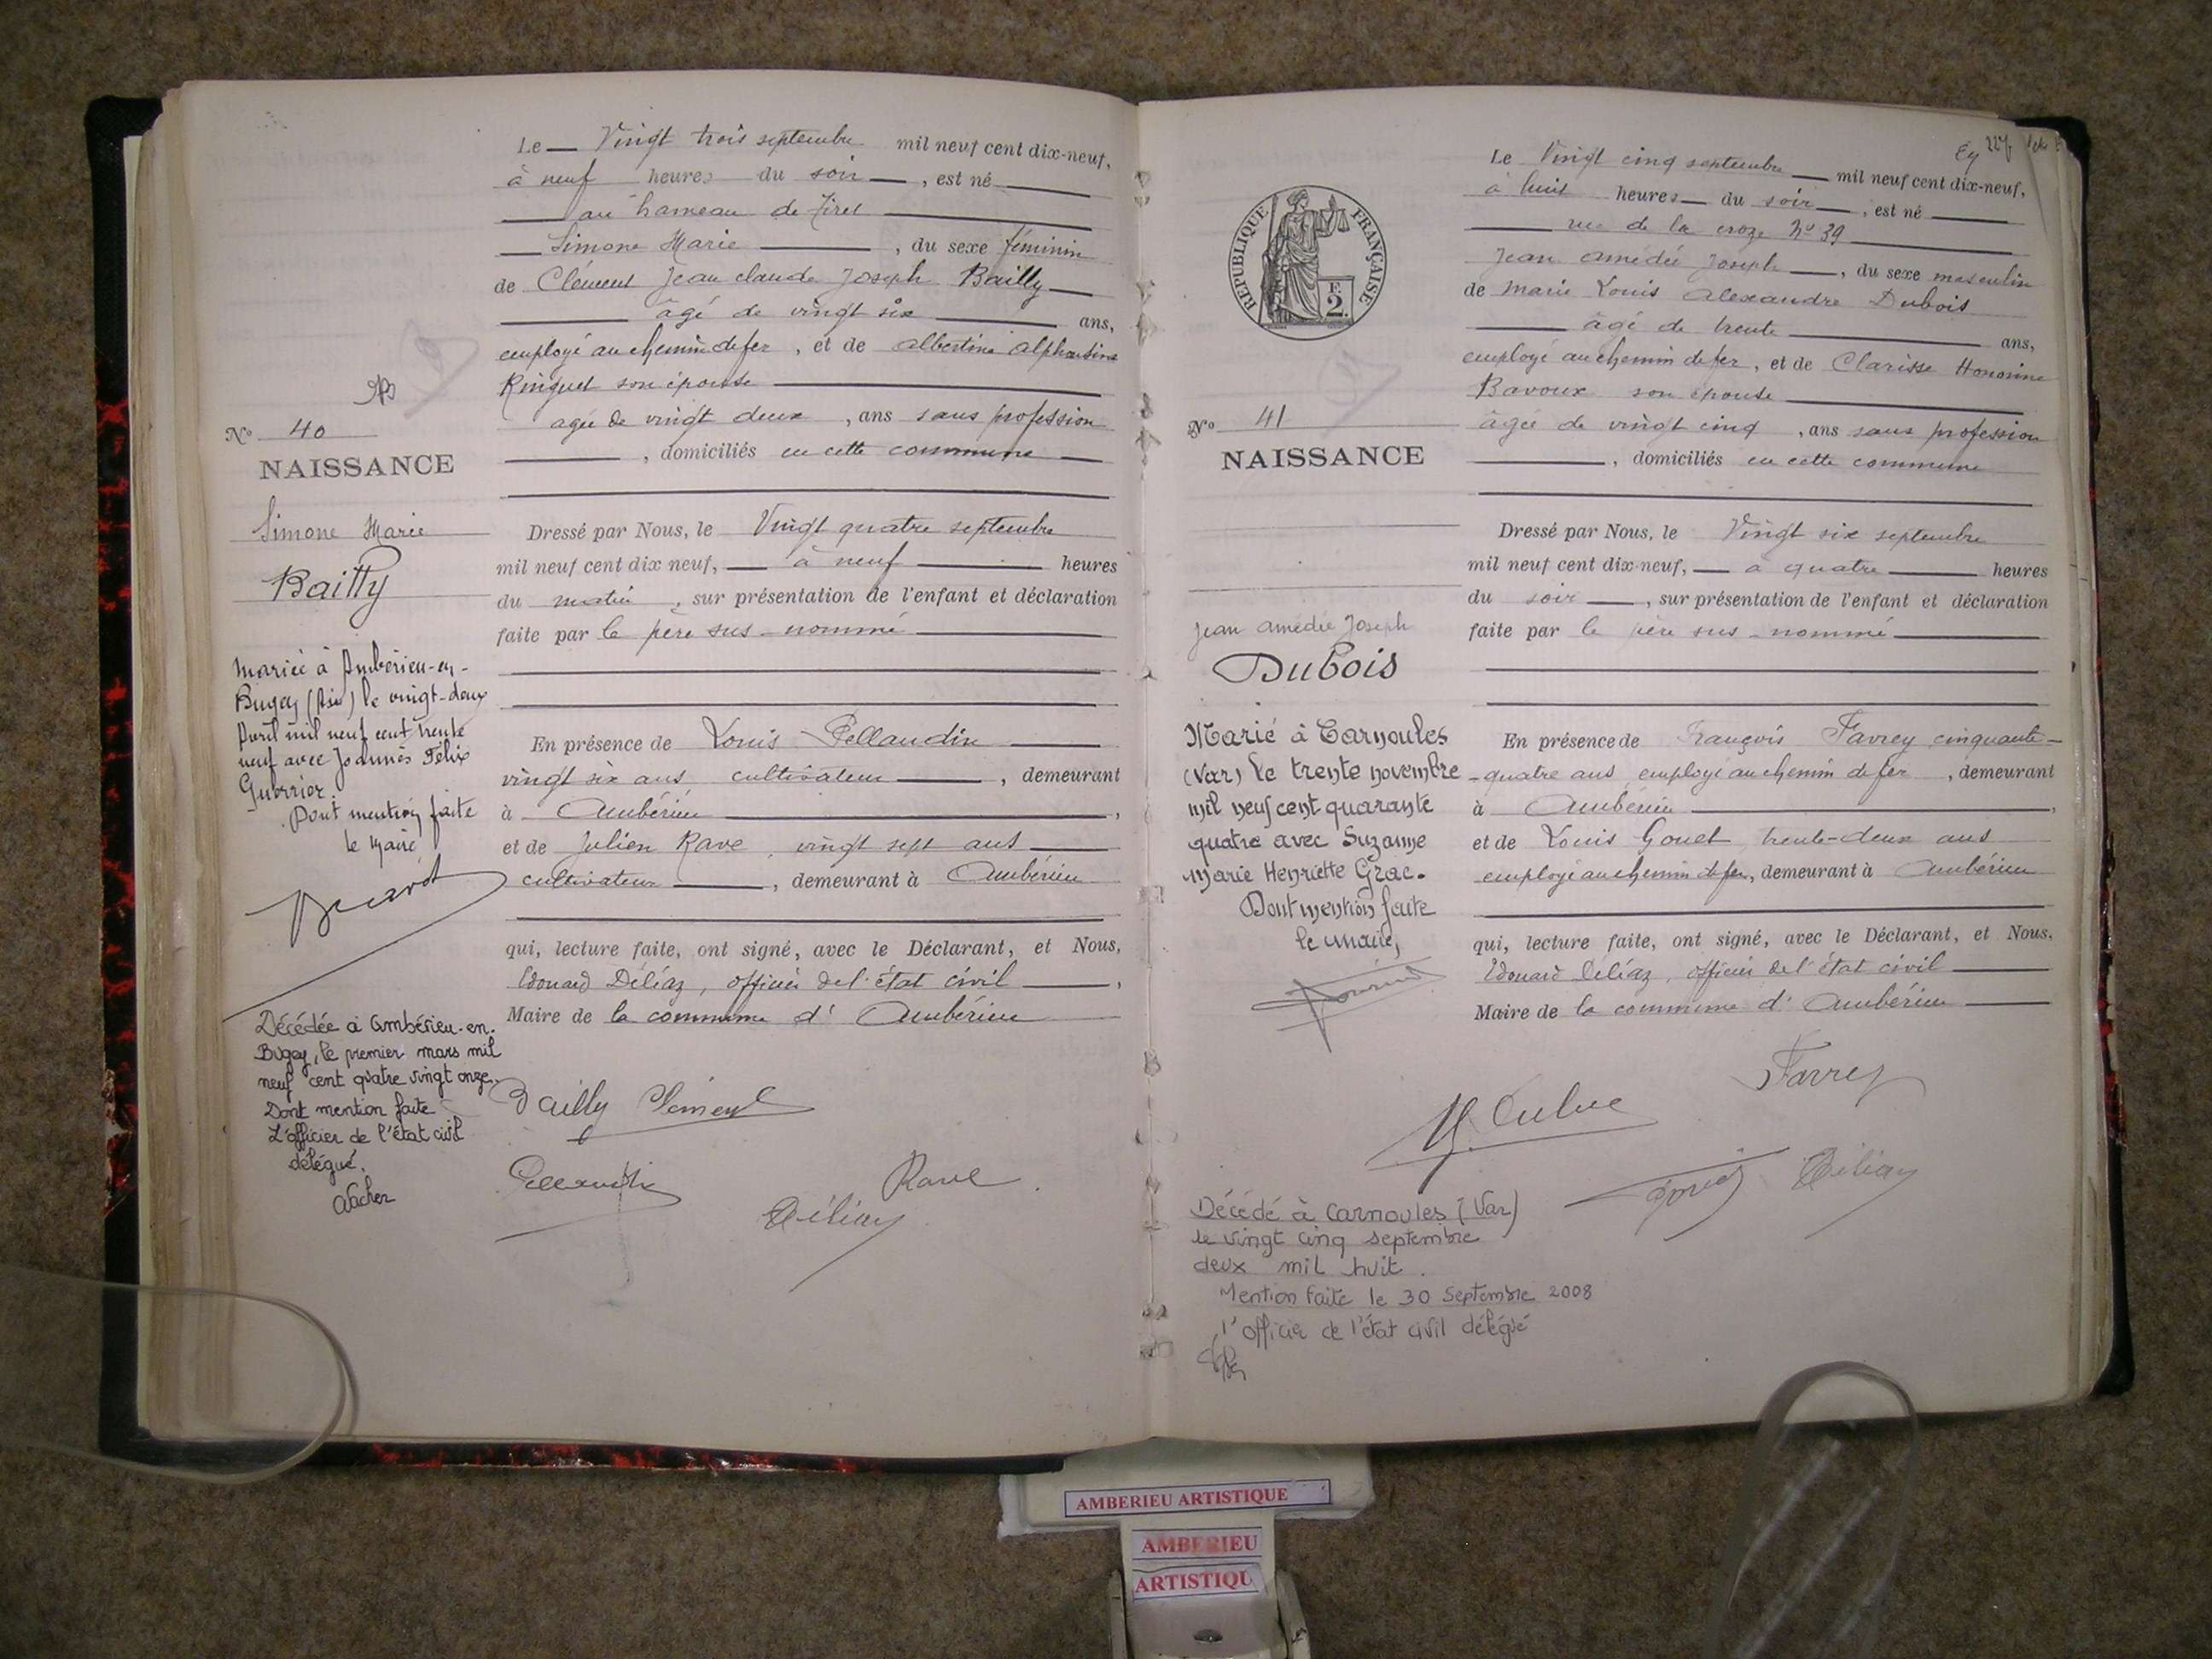 Le Vingt trois septembre mil neuf cent dix-neuf,
à neuf heures du soir, est né
au hameau de Tiret
Simone Marie, du sexe féminin
de Clément Jean claude Joseph Bailly
âgé de vingt six ans,
employé au chemin de fer, et de albertine alphonsine
Ringuet son épouse
agée de vingt deux, ans sans profession
, domiciliés en cette commune
N° 40
NAISSANCE
Simone Marie
Bailly
Dressé par Nous, le Vingt quatre septembre
mil neuf cent dix neuf, à neuf heures
du matin, sur présentation de l'enfant et déclaration
faite par le père sus-nommé
En présence de Louis Pellaudin
vingt six ans cultivateur, demeurant
à Ambérieu,
et de Julien Rave, vingt sept ans
cultivateur, demeurant à Ambérieu
qui, lecture faite, ont signé, avec le Déclarant, et Nous,
Edouard Déliaz, officier de l'état civil,
Maire de la commune d'Ambérieu
Mariée à Ambérieu-en-
Bugey (Ain) le vingt-deux
Avril mil neuf cent trente
neuf avec Joannès Félix
Guerrier.
Dont mention faite
le Maire
Décédée à Ambérieu-en-
Bugey, le premier mars mil
neuf cent quatre vingt onze.
Dont mention faite
L'officier de l'état civil
délégué,
Bailly Clément
Rave
Déliaz
Le Vingt cinq septembre mil neuf cent dix-neuf,
à huit heures du soir, est né
rue de la croze N° 39
Jean amédée Joseph, du sexe masculin
de Marie Louis Alexandre Dubois
âgé de trente ans,
employé au chemin de fer, et de Clarisse Honorine
Bavoux son épouse
âgée de vingt cinq, ans sans profession
, domiciliés en cette commune
RÉPUBLIQUE FRANÇAISE
F.
2.
N° 41
NAISSANCE
Jean amédée Joseph
Dubois
Dressé par Nous, le Vingt six septembre
mil neuf cent dix-neuf, à quatre heures
du soir, sur présentation de l'enfant et déclaration
faite par le père sus-nommé
En présence de François Favrey cinquante-
-quatre ans employé au chemin de fer, demeurant
à Ambérieu,
et de Louis Gouet trente-deux ans
employé au chemin de fer, demeurant à Ambérieu
qui, lecture faite, ont signé, avec le Déclarant, et Nous,
Edouard Déliaz, officier de l'état civil
Maire de la commune d'Ambérieu
Marié à Carnoules
(Var) le trente novembre
mil neuf cent quarante
quatre avec Suzanne
Marie Henriette Grac.
Dont mention faite
le maire,
Favrey
Déliaz
Décédé à Carnoules (Var)
le vingt cinq septembre
deux mil huit.
Mention faite le 30 Septembre 2008
L'officier de l'état civil délégué
AMBERIEU ARTISTIQUE
AMBERIEU
ARTISTIQU